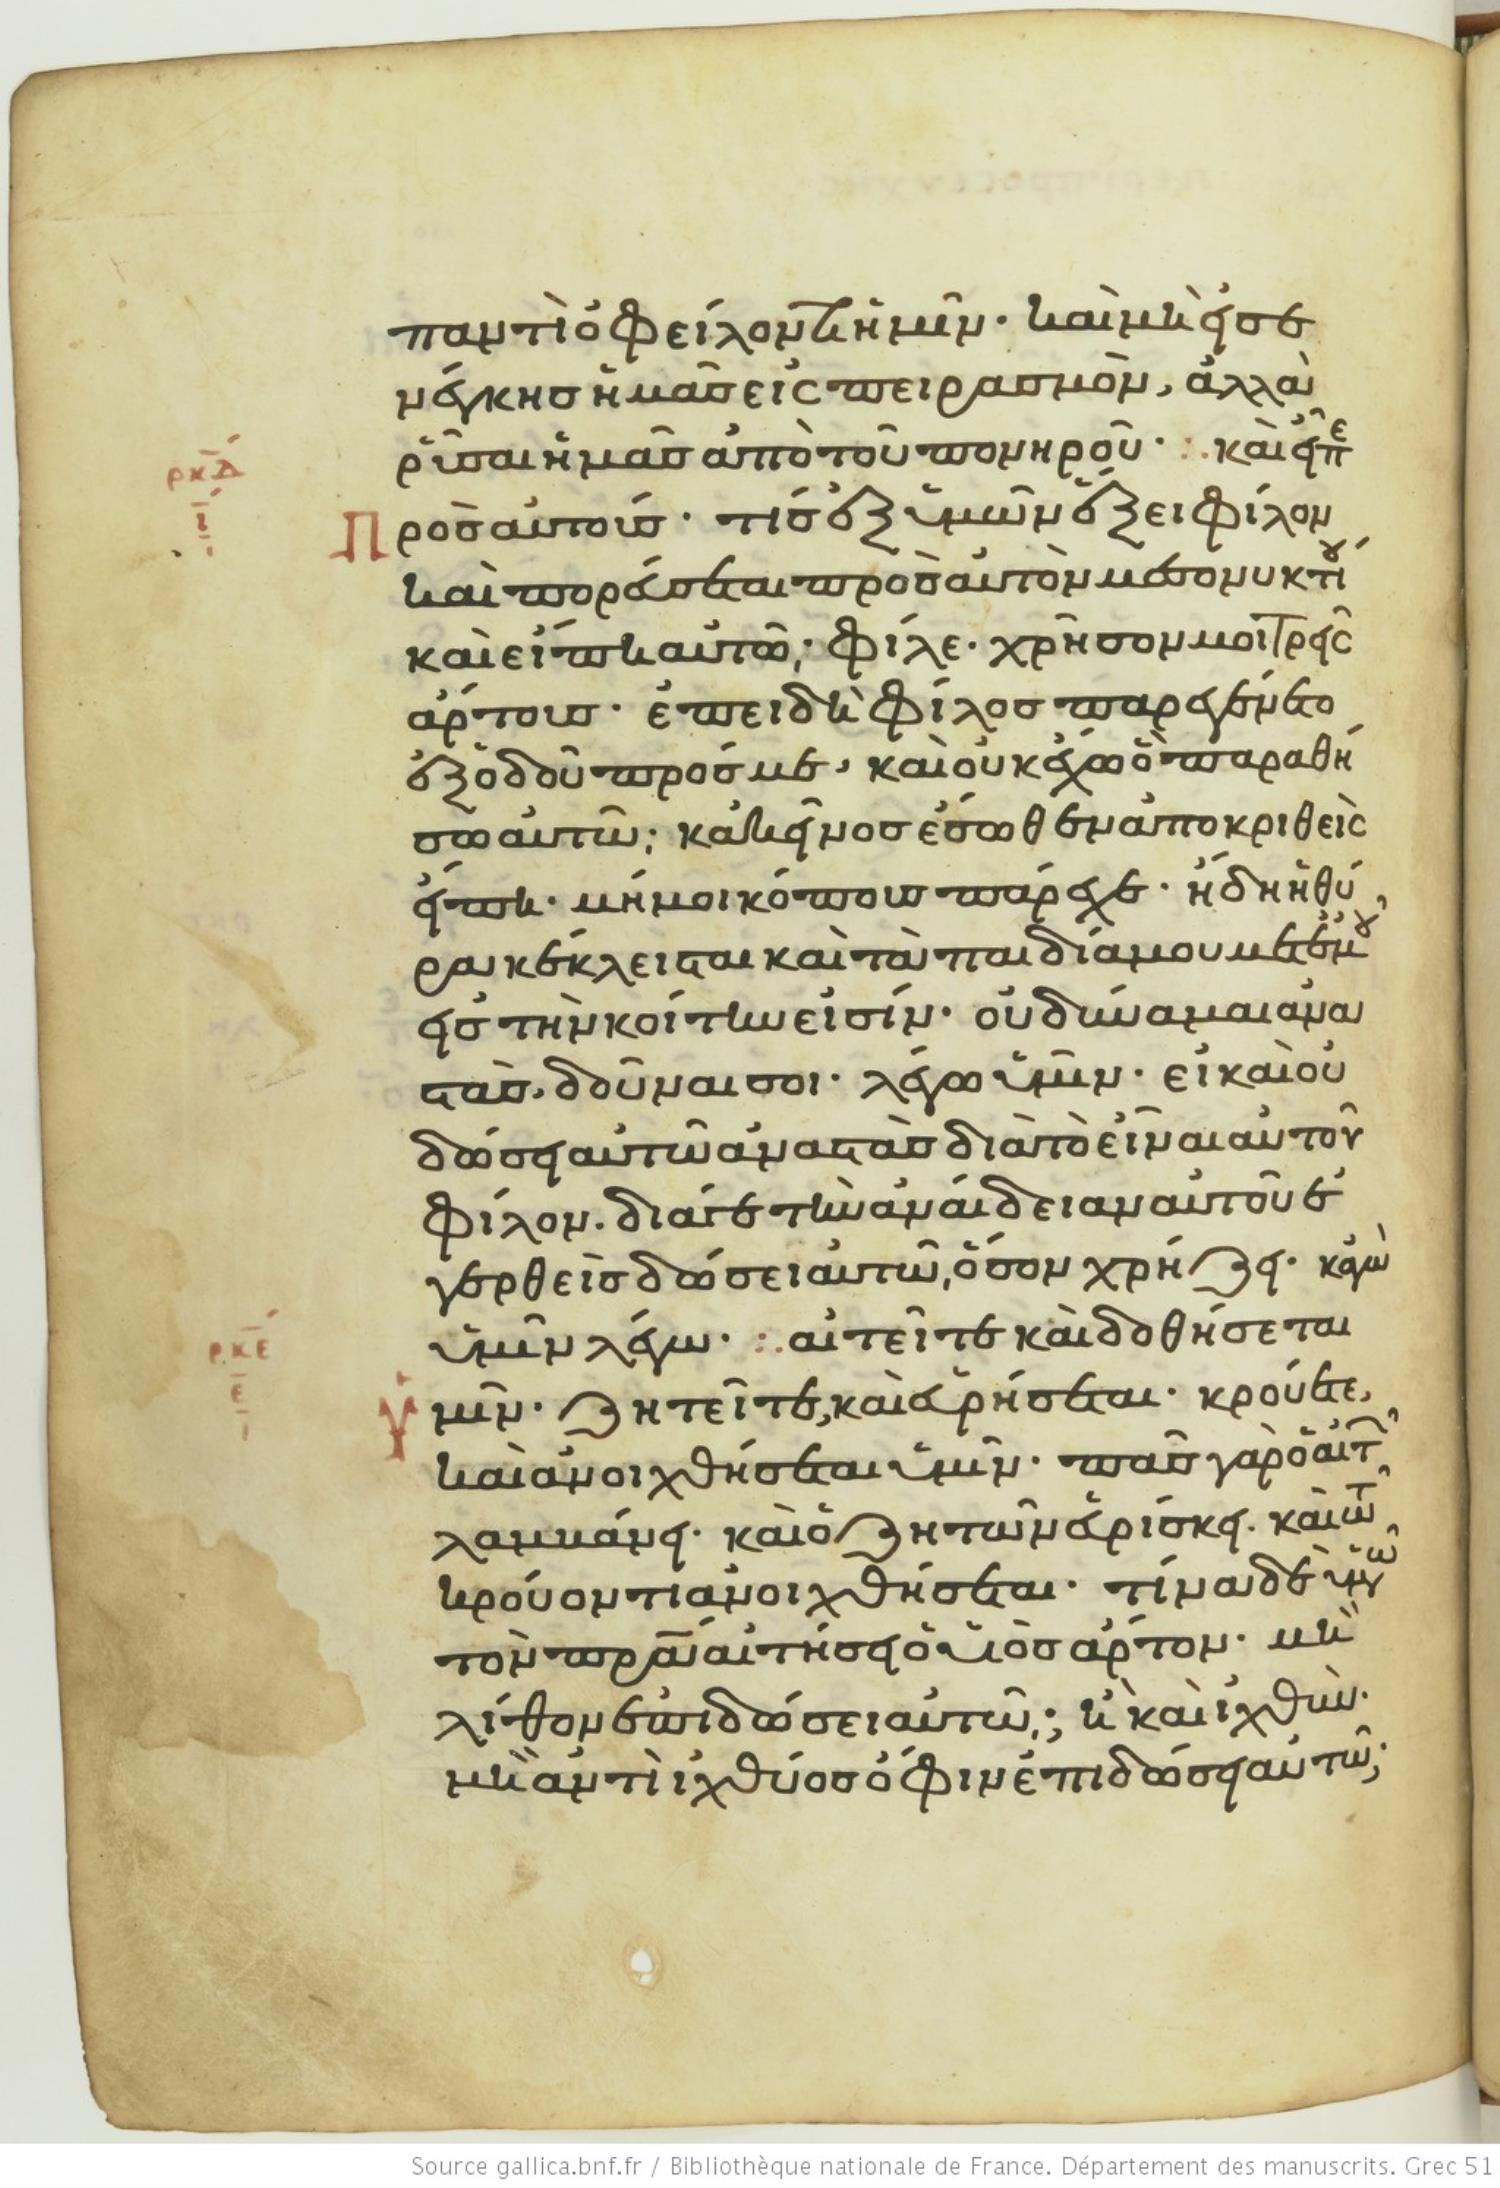 παντὶ ὀφείλοντι ἡμῖν· καὶ μὴ εἰσε
νέγκης ἡμᾶς εἰς πειρασμὸν, ἀλλὰ
ρκδ
ῥῦσαι ἡμᾶς ἀπὸ τοῦ πονηροῦ· : . καὶ εἶπε
ι
Προς αὐτούς· τίς ἐξ ὑμῶν ἕξει φίλον
καὶ πορεύσεται πρὸς αὐτὸν μεσονυκτίου
καὶ εἴπη αὐτῶ; φίλε· χρῆσον μοι τρεῖς
ἄρτους· ἐπειδὴ φίλος παρεγένετο
ἐξ ὁδοῦ πρός με, καὶ οὐκ ἔχω ὃ παραθή
σω αὐτῶ; κἀκεῖνος ἔσωθεν ἀποκριθεὶς
εἴπη· μή μοι κόπους πάρεχε· ἤδη ἡ θύ
ρα κέκλεισται καὶ τὰ παιδία μου μετ' ἐμοῦ
εἰς τὴν κοίτην εἰσίν· οὐ δύναμαι ἀνα
στὰς, δοῦναι σοι· λέγω ὑμῖν· εἰ καὶ οὐ
δώσει αὐτῶ ἀναστὰς διὰ τὸ εἶναι αὐτοῦ
φίλον. διά γε τὴν ἀναίδειαν αὐτοῦ ἐ
γερθεὶς δώσει αὐτῶ, ὅσον χρήζει· κἀγὼ
ρκε
ὑμῖν λέγω· : . αἰτεῖτε καὶ δοθήσεται
ε
Ὑμῖν· ζητεῖτε, καὶ εὑρήσεται· κρούετε,
καὶ ἀνοιχθήσεται ὑμῖν· πᾶς γὰρ ὁ αἰτῶν
λαμβάνει· καὶ ὁ ζητῶν εὑρίσκει. καὶ τῶ
κρούοντι ἀνοιχθήσεται· τίνα δὲ ὑμῶν
τὸν πρα αἰτήσει ὁ υἱὸς ἄρτον· μὴ
λίθον ἐπιδώσει αὐτῶ; ἢ καὶ ἰχθύν·
μὴ ἀντὶ ἰχθύος ὄφιν ἐπιδώσει αὐτῶ;
Source gallica.bnf.fr / Bibliothèque nationale de France. Département des manuscrits. Grec 51